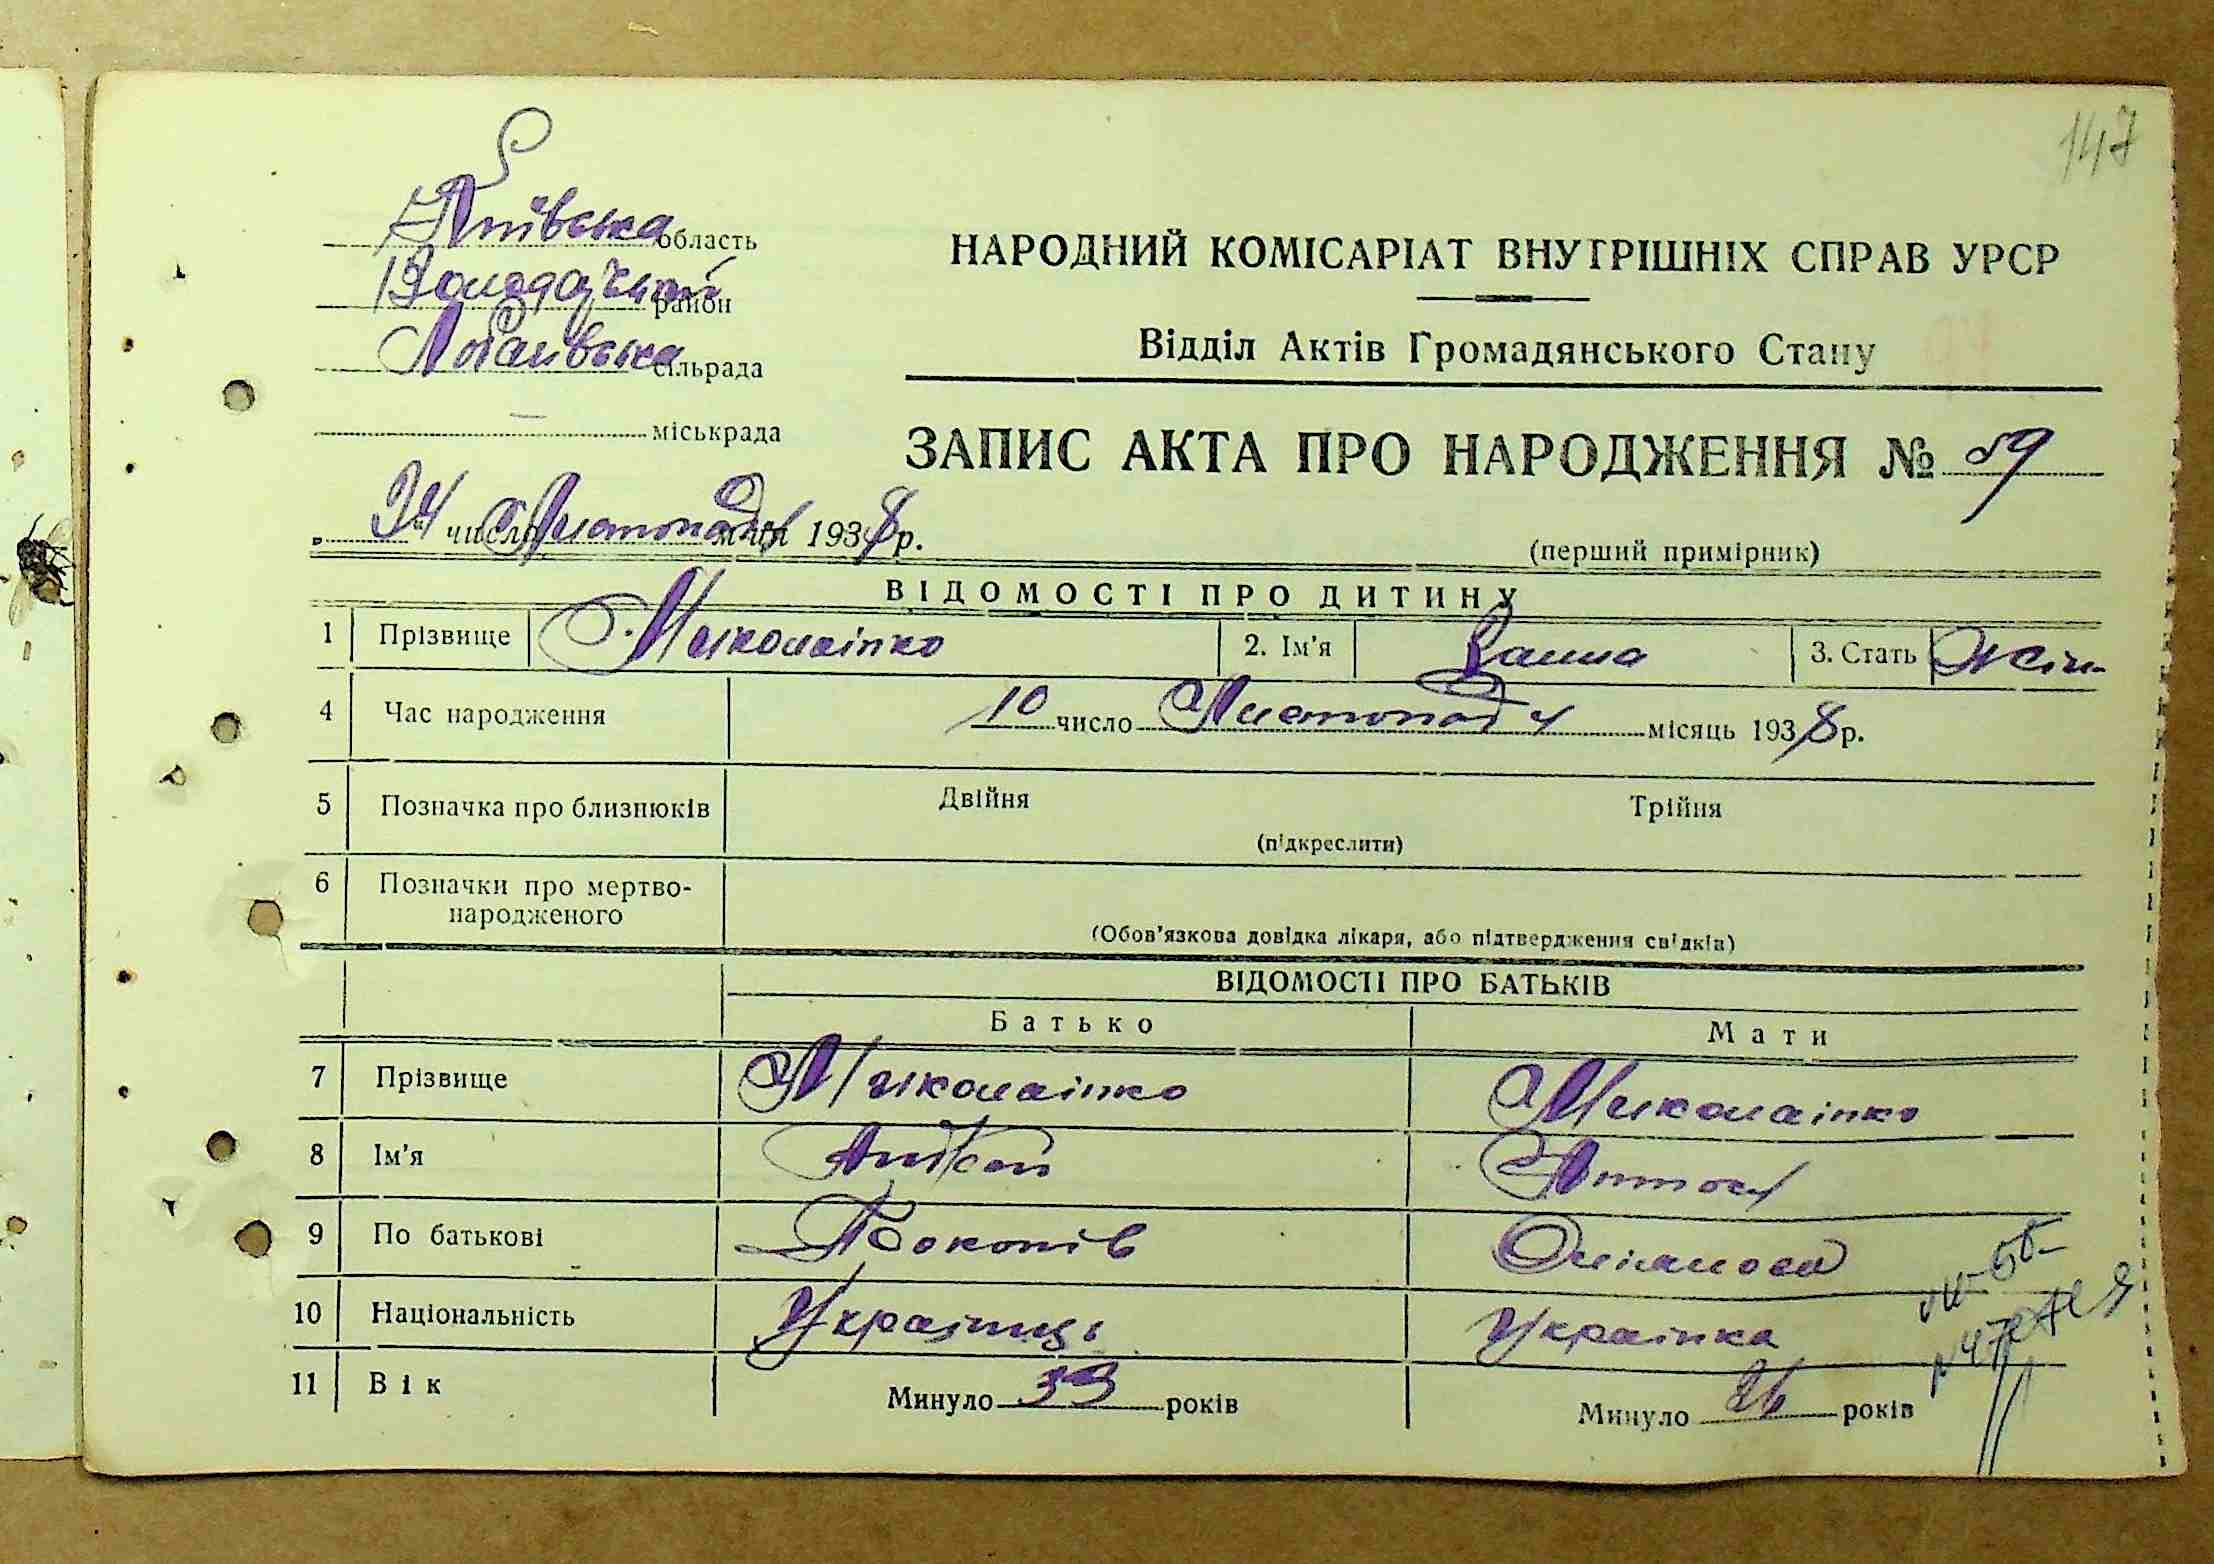 147
Київська область
Володарський район
Лобачівська сільрада
— міськрада
НАРОДНИЙ КОМІСАРІАТ ВНУТРІШНІХ СПРАВ УРСР
Відділ Актів Громадянського Стану
ЗАПИС АКТА ПРО НАРОДЖЕННЯ № 59
24 число Листопада м-ця 1938 р.
(перший примірник)
ВІДОМОСТІ ПРО ДИТИНУ
1 Прізвище Миколаінко 2. Ім'я Ганна 3. Стать Жін.
4 Час народження 10 число Листопада місяць 1938 р.
5 Позначка про близнюків Двійня Трійня
(підкреслити)
6 Позначки про мертво-
народженого
(Обов'язкова довідка лікаря, або підтвердження свідків)
ВІДОМОСТІ ПРО БАТЬКІВ
Батько Мати
7 Прізвище Миколаінко Миколаінко
8 Ім'я Андрей
9 По батькові Прокопів
10 Національність Українці Украінка
11 Вік Минуло 33 років Минуло 26 років